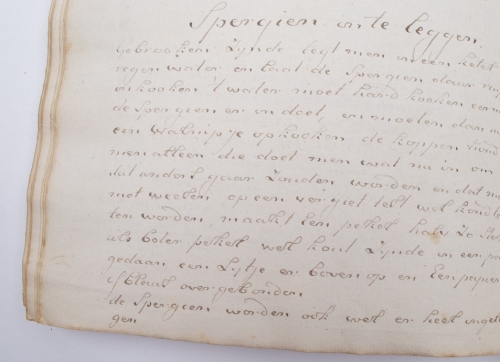 Spergien in te leggen
gebrooken zynde legt men in een ketel
regen water en laat de Spergien daar
in kooken 't water moet hard kooken eer
de Spergien er in doet, en moeten dan
een walmpje opkooken de koppen
men alleen die doet men wat na in om
dat anders gaar zouden worden en dat
niet weesen op een vergiet test wel koud
ten worden, maakt een pekel half zo
als boter pekel wel kout zynde in een
gedaan een Lytje er boven op en Een papier
of blaas over gebonden
de Spergien worden ook wel er heel
gen